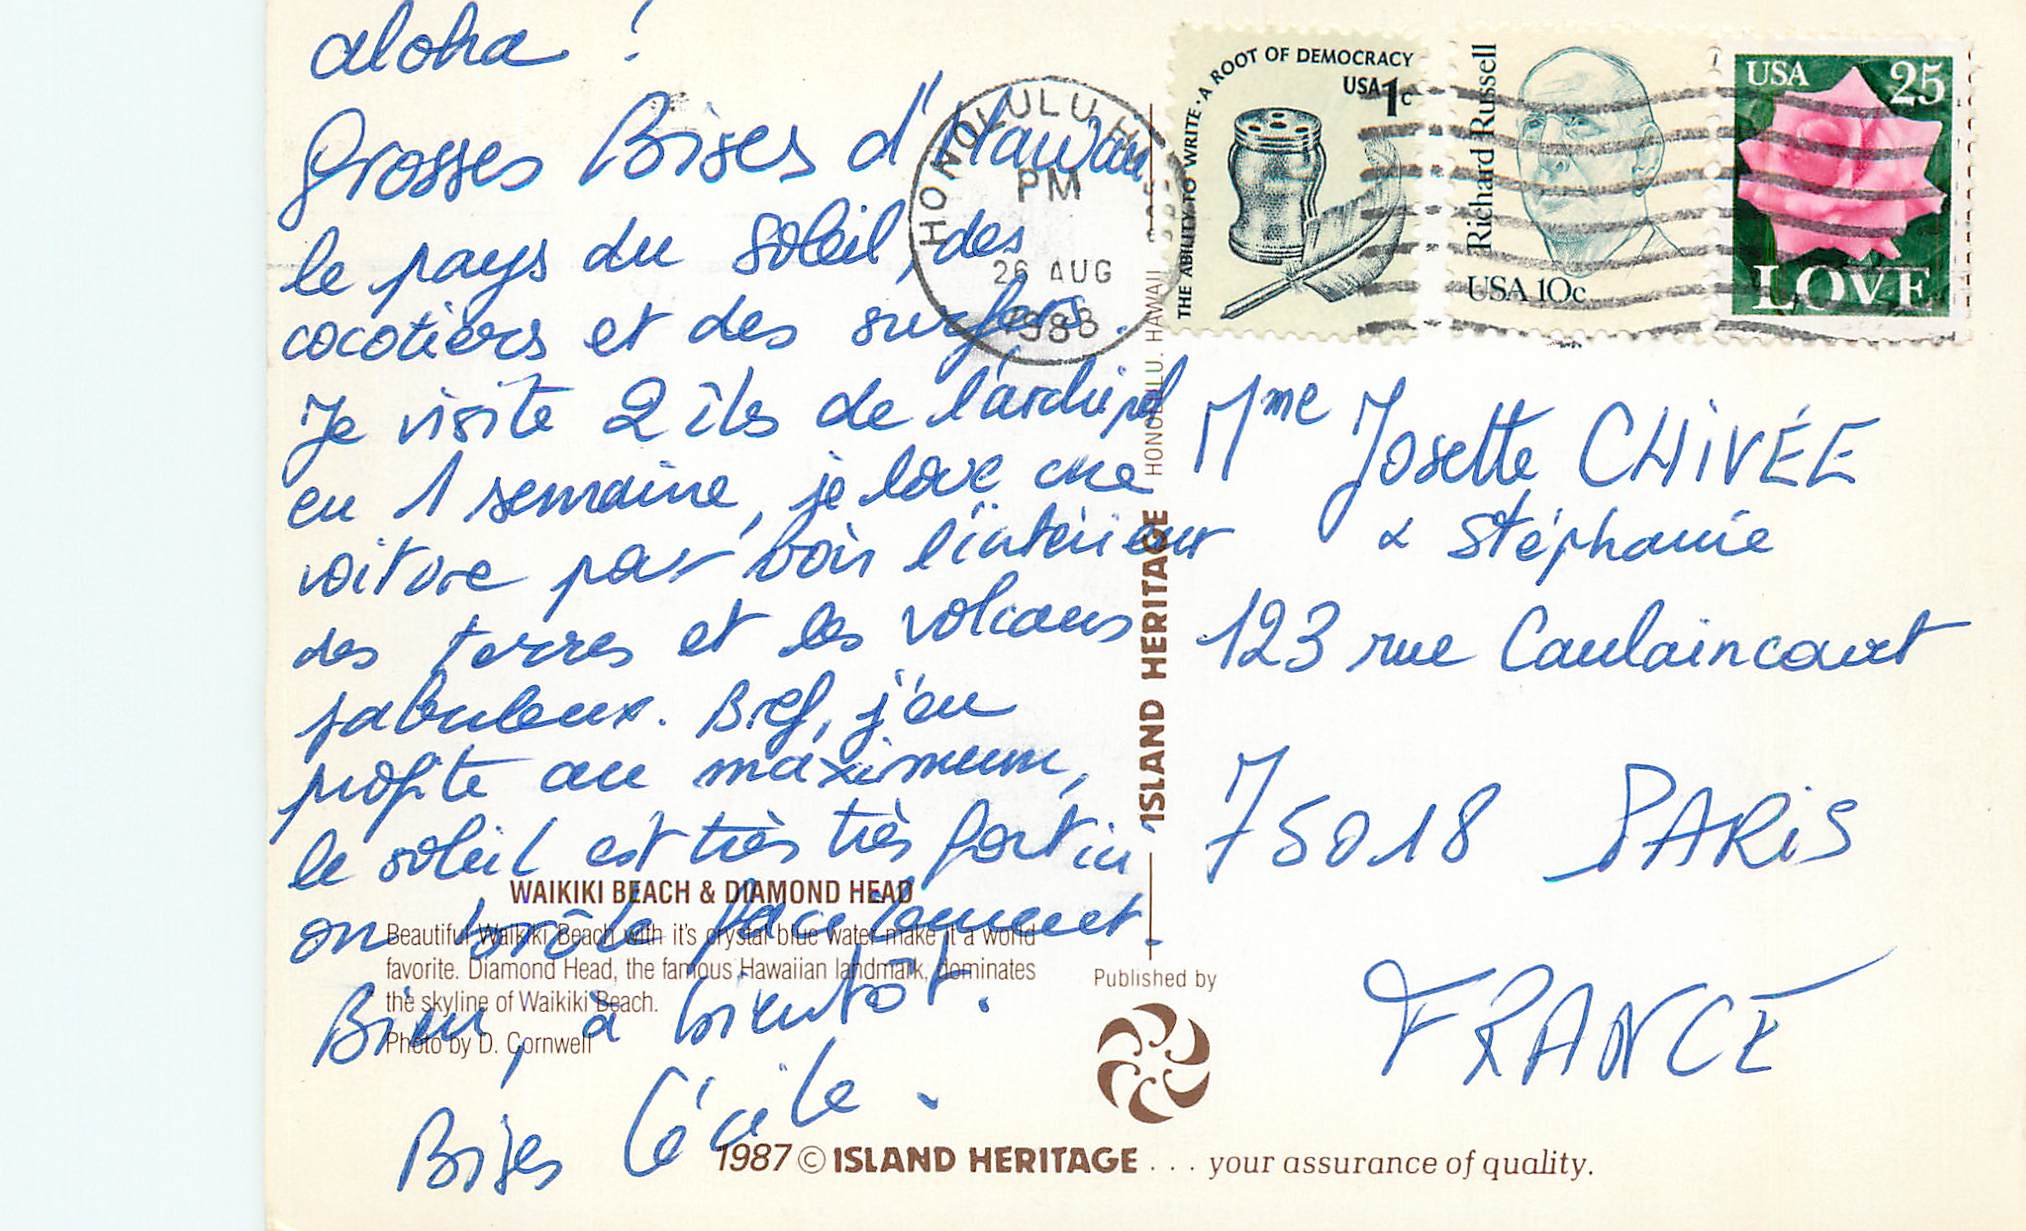 aloha !
Grosses Bises d'Hawaii
le pays du soleil, des
cocotiers et des surfers.
Je visite 2 îles de l'archipel
en 1 semaine, je loue une
voiture pour voir l'intérieur
des terres et les volcans
fabuleux. Bref, j'en
profite au maximum,
le soleil est très très fort ici
on brûle facilement.
Bien, à bientôt.
Bises Cécile.
HONOLULU, HI
PM
26 AUG
1988
THE ABILITY TO WRITE · A ROOT OF DEMOCRACY
USA 1c
Richard Russell
USA 10c
USA 25
LOVE
Mme Josette CHIVÉE
& Stéphanie
123 rue Caulaincourt
75018 PARIS
FRANCE
WAIKIKI BEACH & DIAMOND HEAD
Beautiful Waikiki Beach with it's crystal blue water make it a world
favorite. Diamond Head, the famous Hawaiian landmark, dominates
the skyline of Waikiki Beach.
Photo by D. Cornwell
ISLAND HERITAGE HONOLULU, HAWAII
Published by
1987 © ISLAND HERITAGE . . . your assurance of quality.